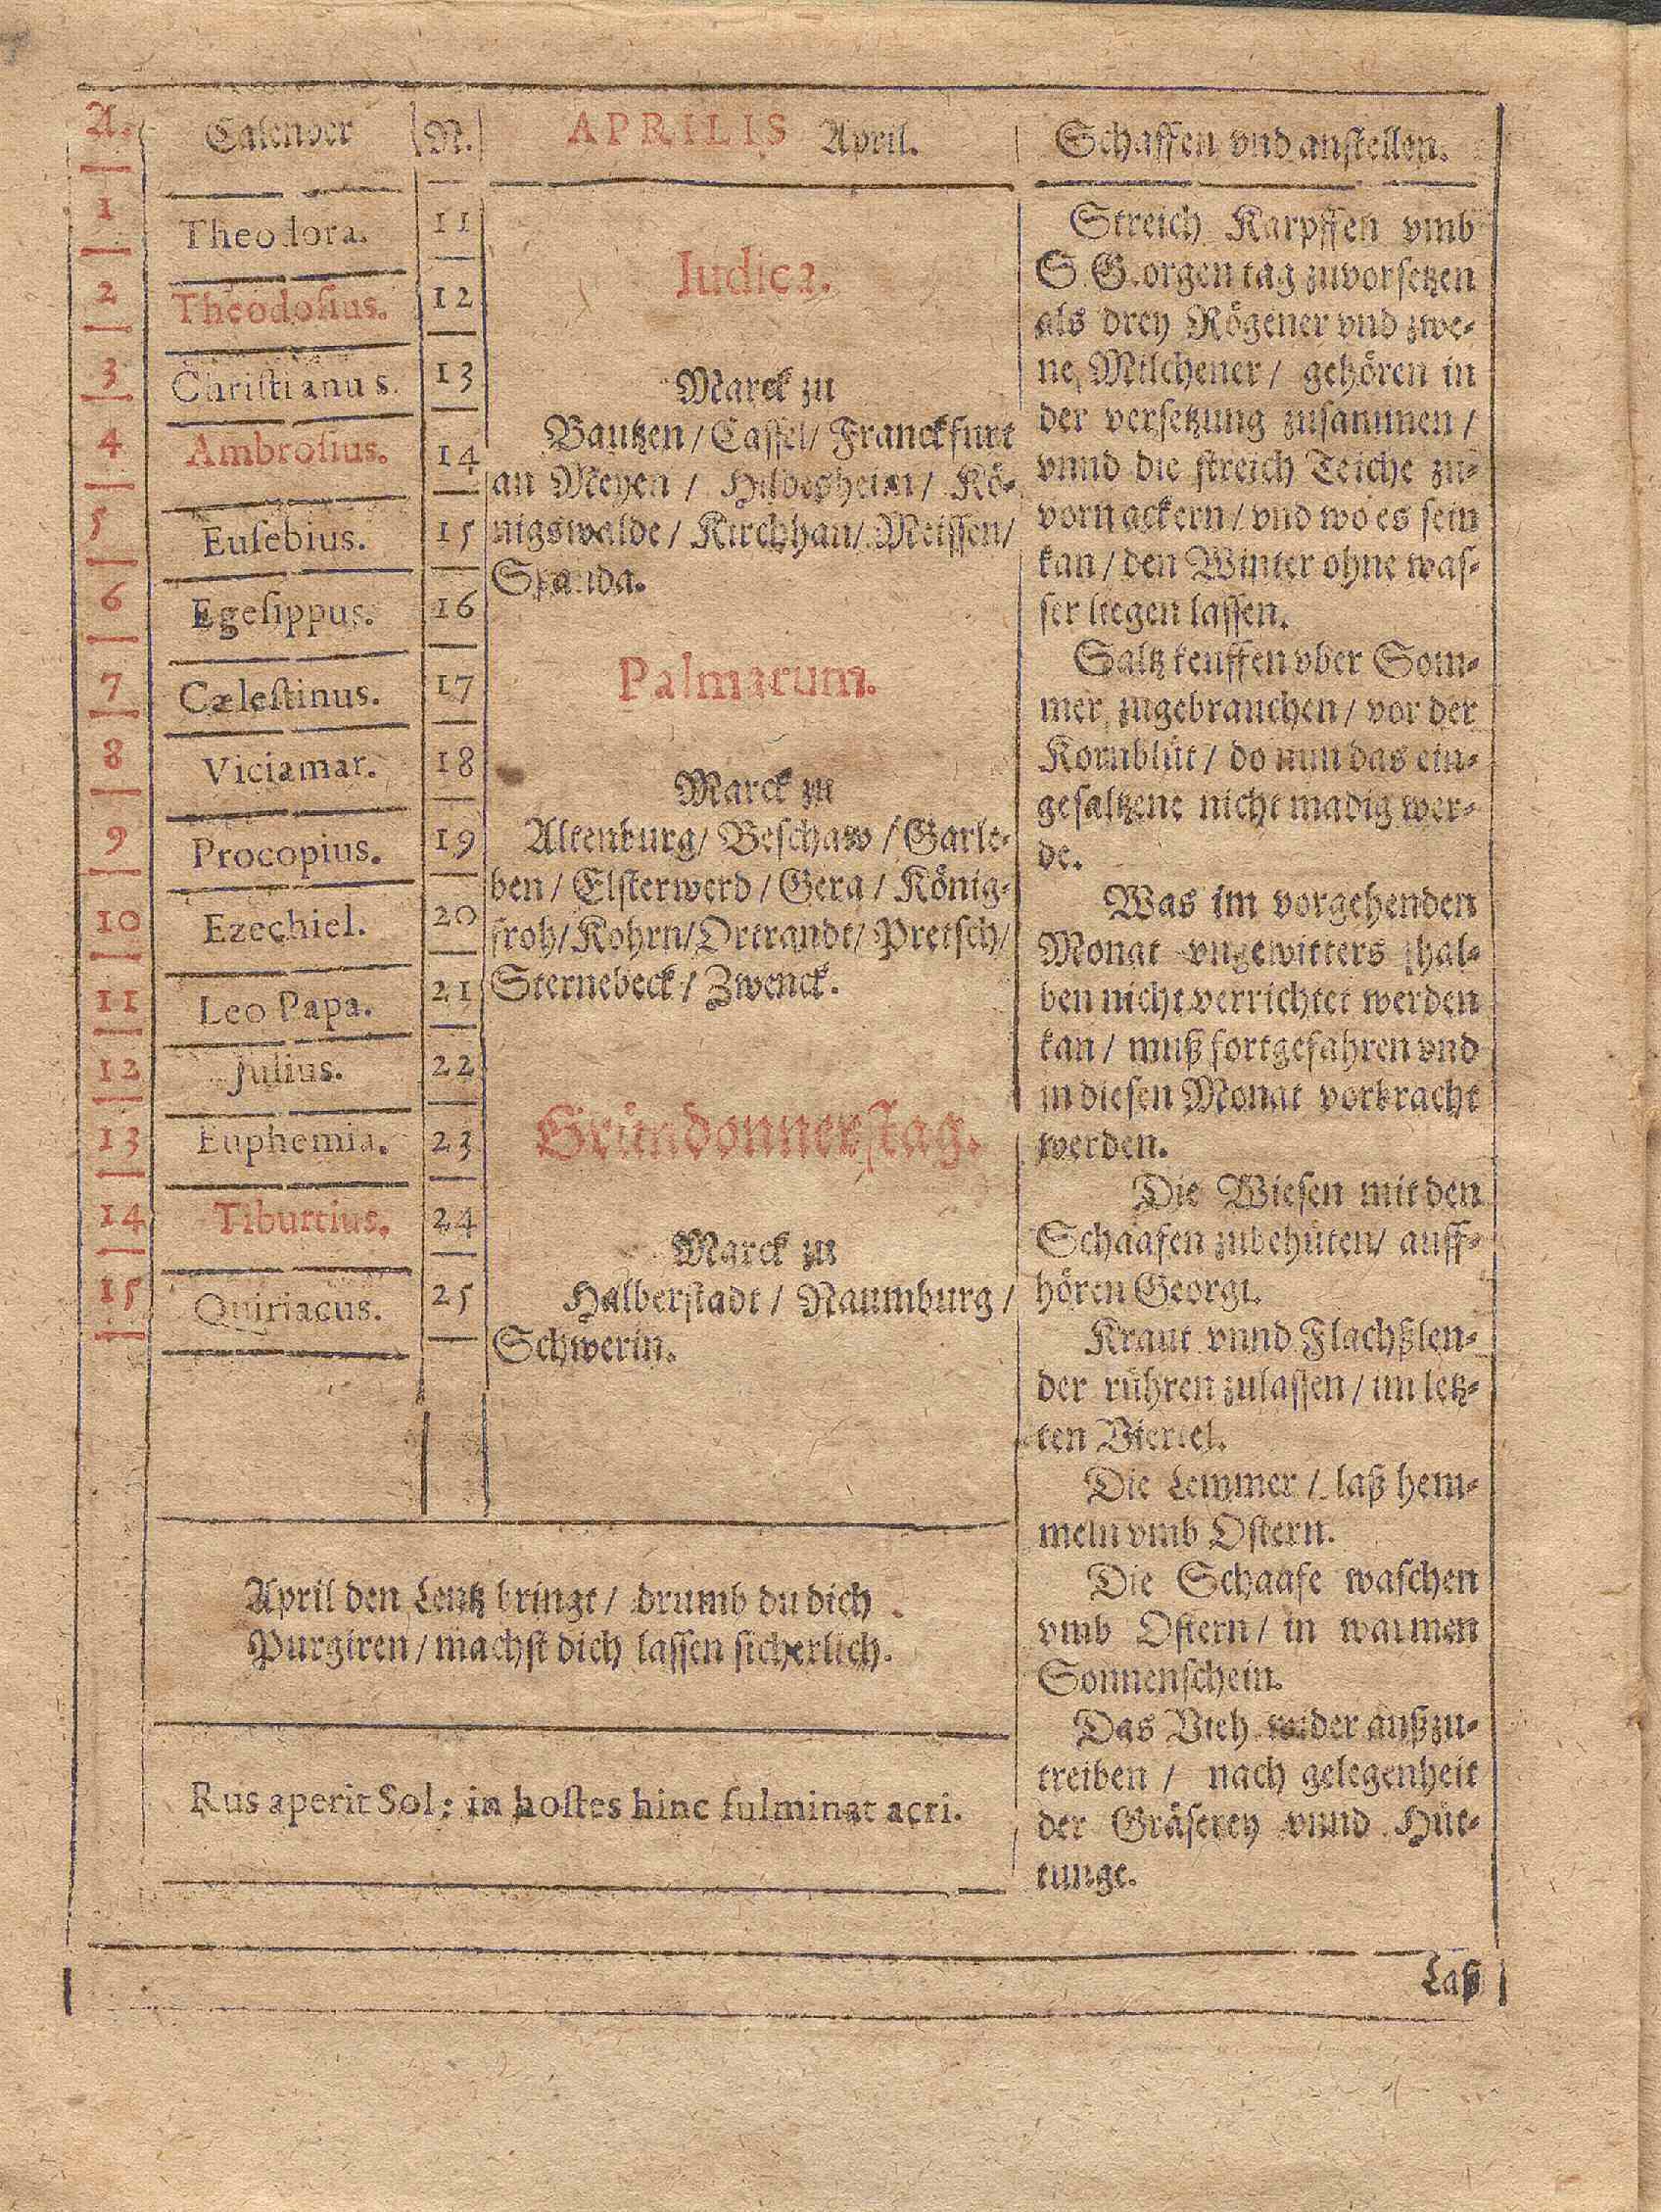 A. Calender N. APRILIS April. Schaffen vnd anstellen.
1 Theodora. 11
2 Theodosius. 12
3 Christianus. 13
4 Ambrosius. 14
5 Eusebius. 15
6 Egesippus. 16
7 Cælestinus. 17
8 Viciamar. 18
9 Procopius. 19
10 Ezechiel. 20
11 Leo Papa. 21
12 Julius. 22
13 Euphemia. 23
14 Tiburtius. 24
15 Quiriacus. 25
Iudica.
Marck zu
Bautzen / Cassel / Franckfurt
an Meyen / Hildesheim / Kö-
nigswalde / Kirchhan / Meissen /
Spanda.
Palmarum.
Marck zu
Altenburg / Beschaw / Garle-
ben / Elsterwerd / Gera / König-
froh / Kohrn / Ortrandt / Pretsch /
Sternebeck / Zwenck.
Gründonnerstag.
Marck zu
Halberstadt / Naumburg /
Schwerin.
April den Lentz bringt / drumb du dich
Purgiren / machst dich lassen sicherlich.
Rus aperit Sol: in hostes hinc fulminat acri.
Streich Karpffen vmb
S. Georgen tag zuvorsetzen
als drey Rögener vnd zwe-
ne Milchener / gehören in
der versetzung zusammen /
vnnd die streich Teiche zu-
vorn ackern / vnd wo es sein
kan / den Winter ohne was-
ser liegen lassen.
Saltz keuffen vber Som-
mer zugebrauchen / vor der
Kornblüt / do nun das ein-
gesaltzene nicht madig wer-
de.
Was im vorgehenden
Monat vngewitters hal-
ben nicht verrichtet werden
kan / muß fortgefahren vnd
in diesen Monat vorbracht
werden.
Die Wiesen mit den
Schaafen zubehüten / auff-
hören Georgi.
Kraut vnnd Flachßlen-
der rühren zulassen / im letz-
ten Viertel.
Die Lemmer / laß hem-
meln vmb Ostern.
Die Schaafe waschen
vmb Ostern / in warmen
Sonnenschein.
Das Vieh wider außzu-
treiben / nach gelegenheit
der Gräserey vnnd Hüt-
tunge.
Laß